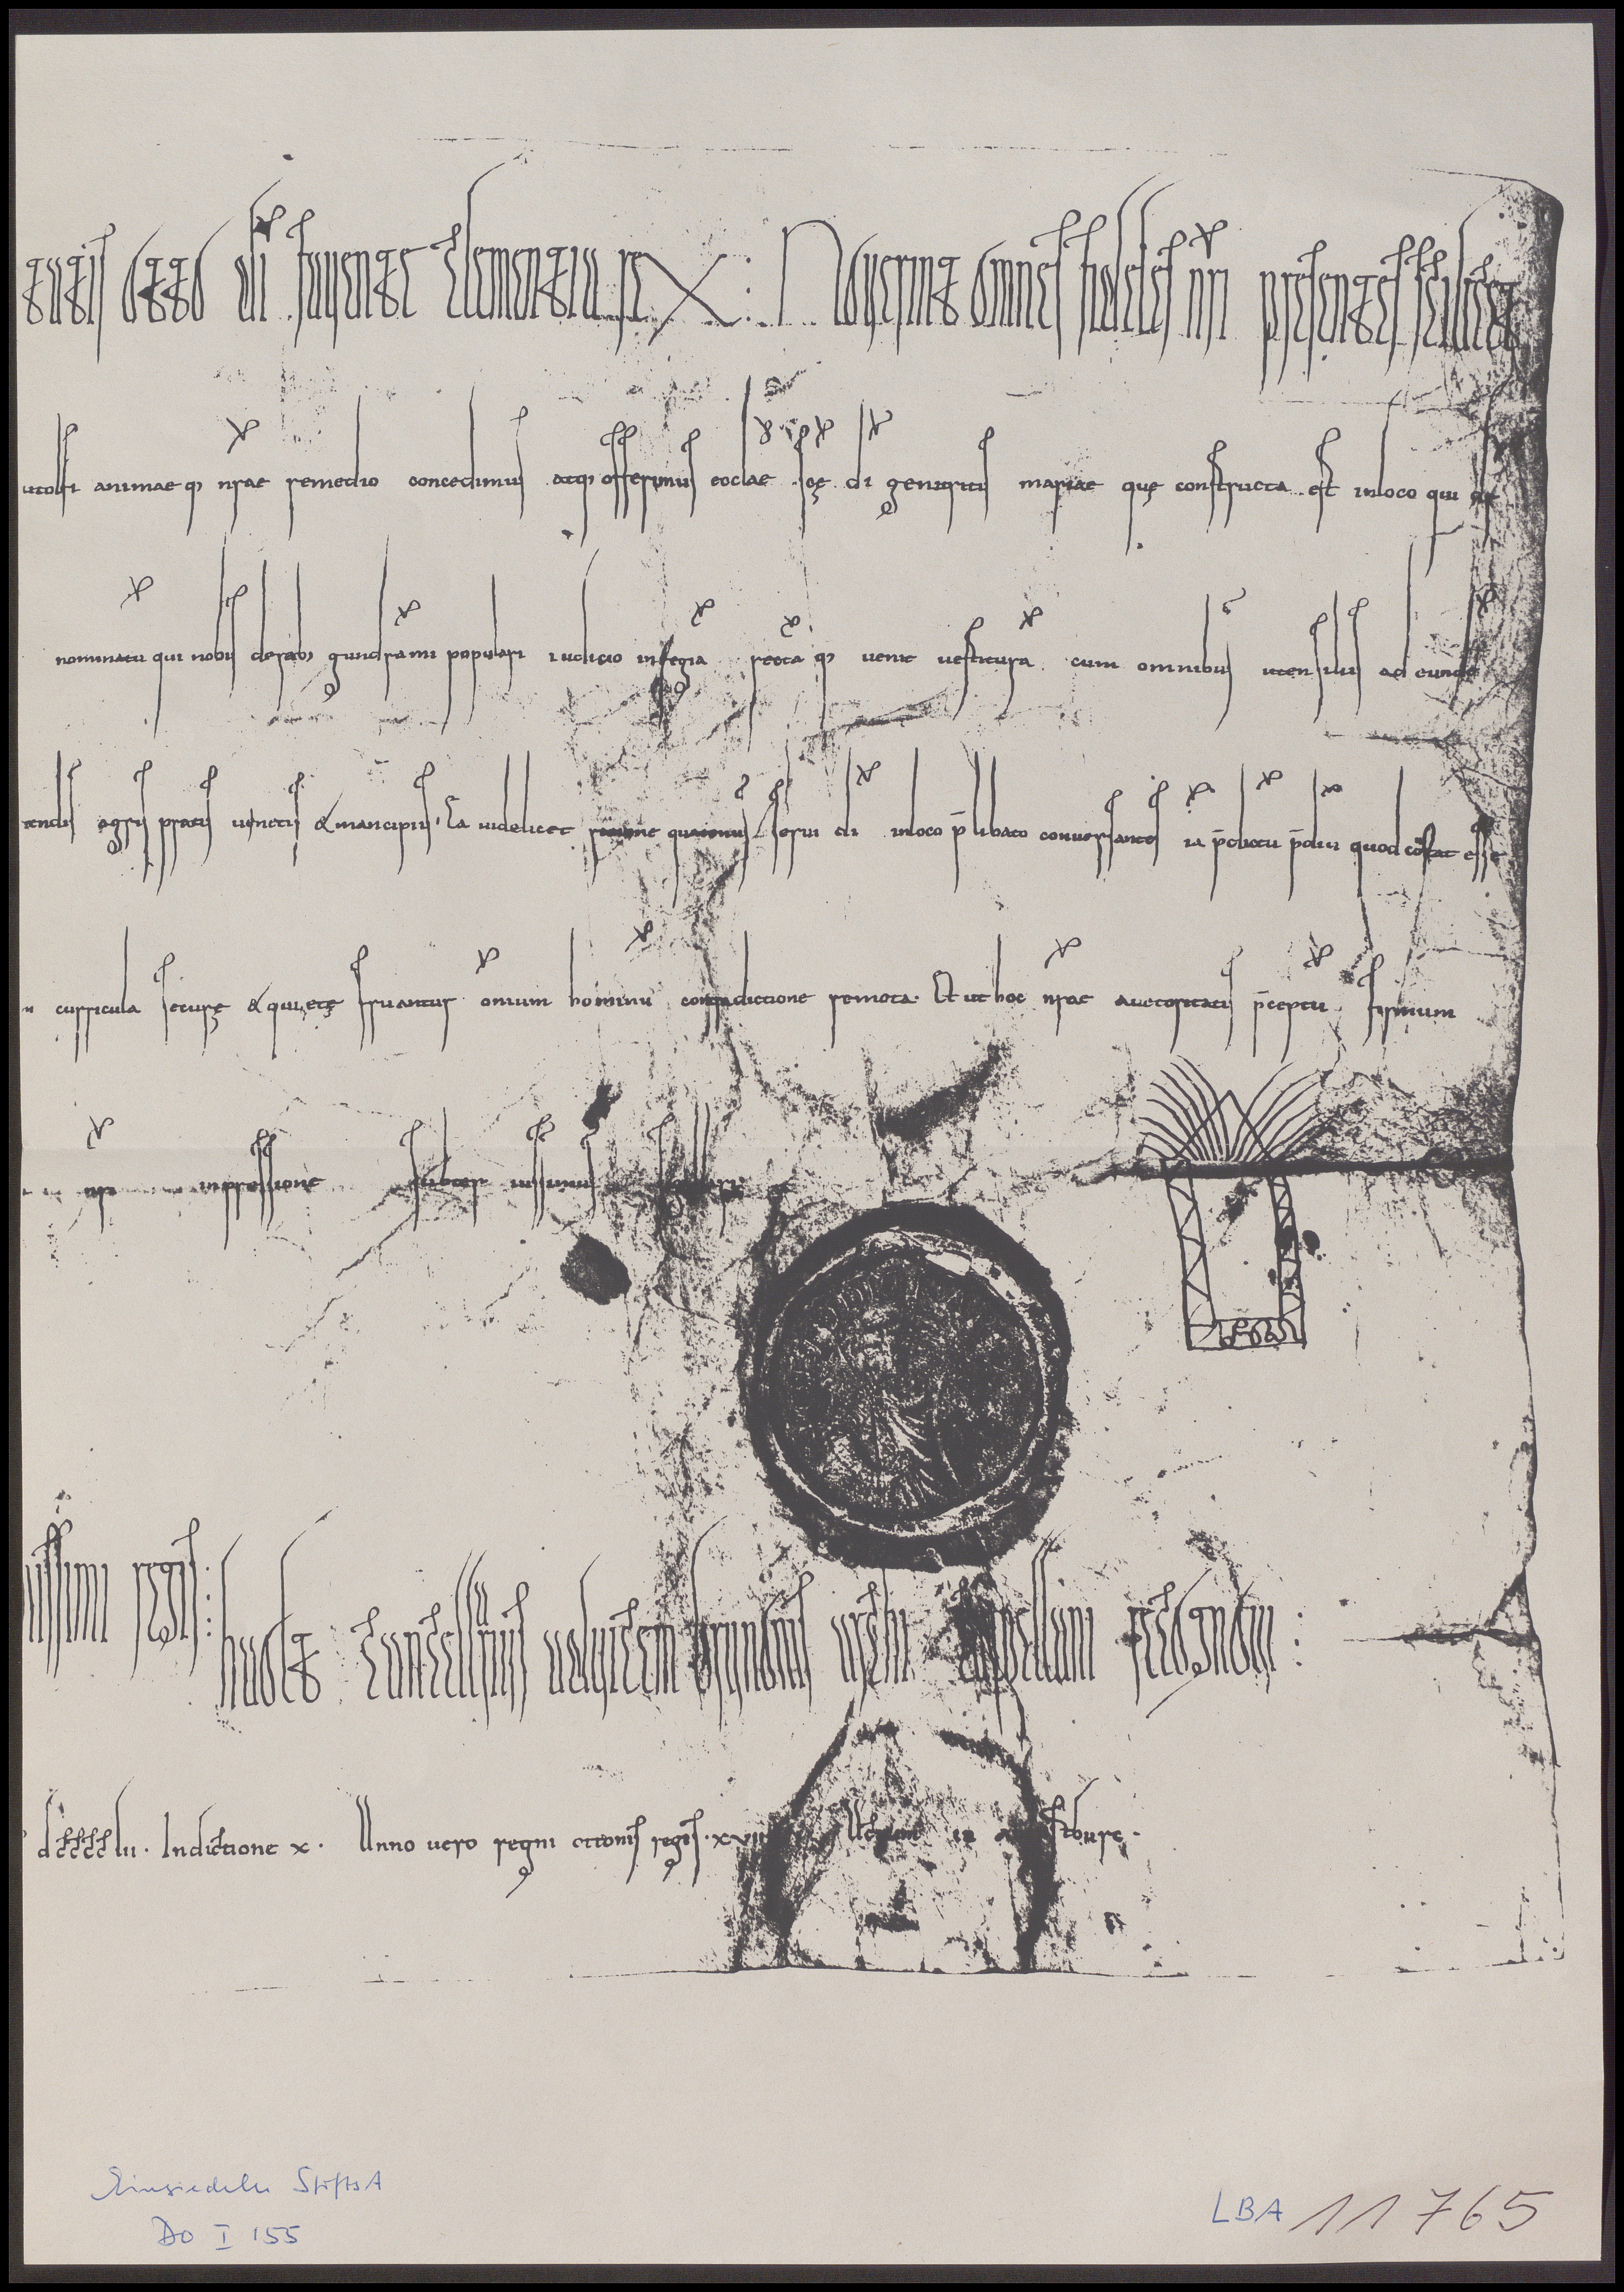 tatis otto di fauente clementia rex : Nouerint omnes fideles nri presentes scilicet
animaeq; nrae remedio concedimus atq; offerimus ecclae scę di genitricis mariae quę constructa est inloco qui
nominatu qui nobis derebꝰ gundrammi populari iudicio inregia rectaq; uenit uestitura cum omnibus utensilibꝰ ad eunde
agris pratis uineis & mancipiis. Ea uidelicet ratione quatenus serui di inloco p̄libato conuersantes ia p̄dictu p̄diu quod cōstat esse
curricula securę & quietę fruantur omium hominu contradictione remota. Et ut hoc nrae auctoritatis p̄ceptu firmum
nri inpressione subter iussimus sigillari:
uissimi regis :
huolt cancellarius aduicem brunonis archi cappellani recognoui :
dcccclii. Indictione x. Anno uero regni ottonis regis. xvii
Einsiedeln StiftsA
DO I 155
LBA 11765